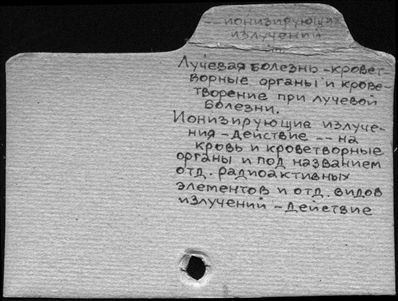 ионизирующие
излучений
Лучевая болезнь – кровет-
ворные органы и крове-
творение при лучевой
болезни.
Ионизирующие излуче-
ния – действие –– на
кровь и кроветворные
органы и под названием
отд. радиоактивных
элементов и отд. видов
излучений – действие